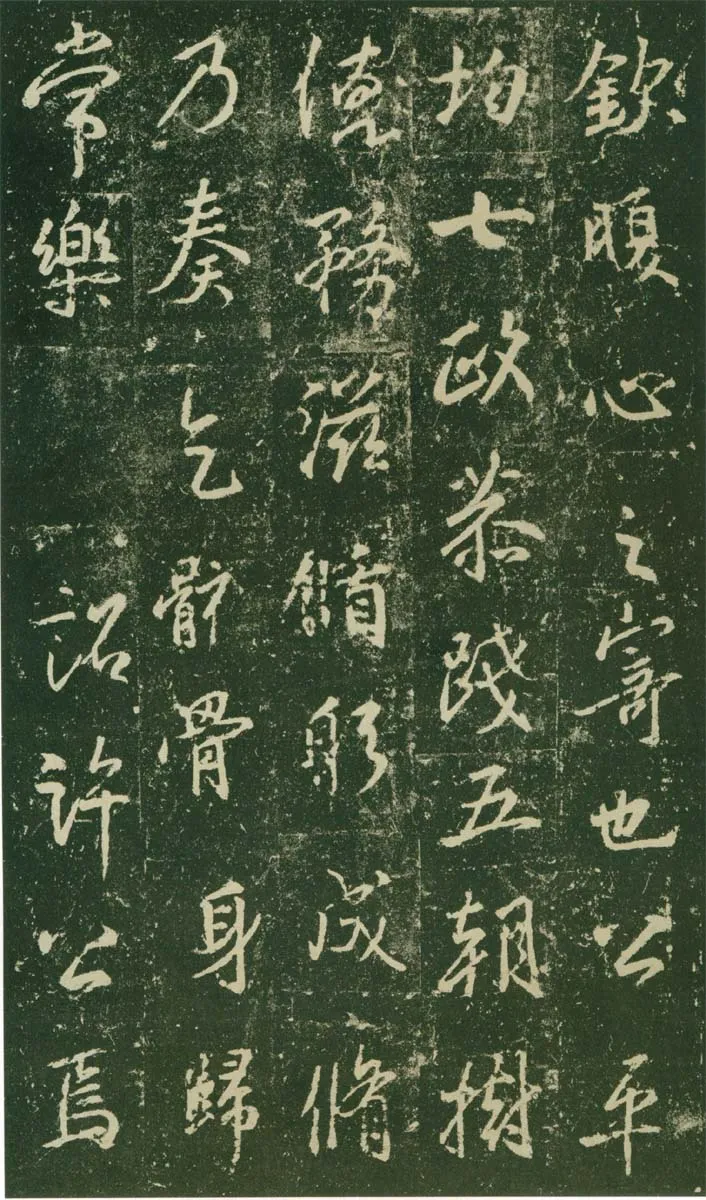 欽腹心之寄也公平
均七政恭踐五朝樹
德務滋躬成脩
乃奏乞骸骨身歸
常樂詔許公焉